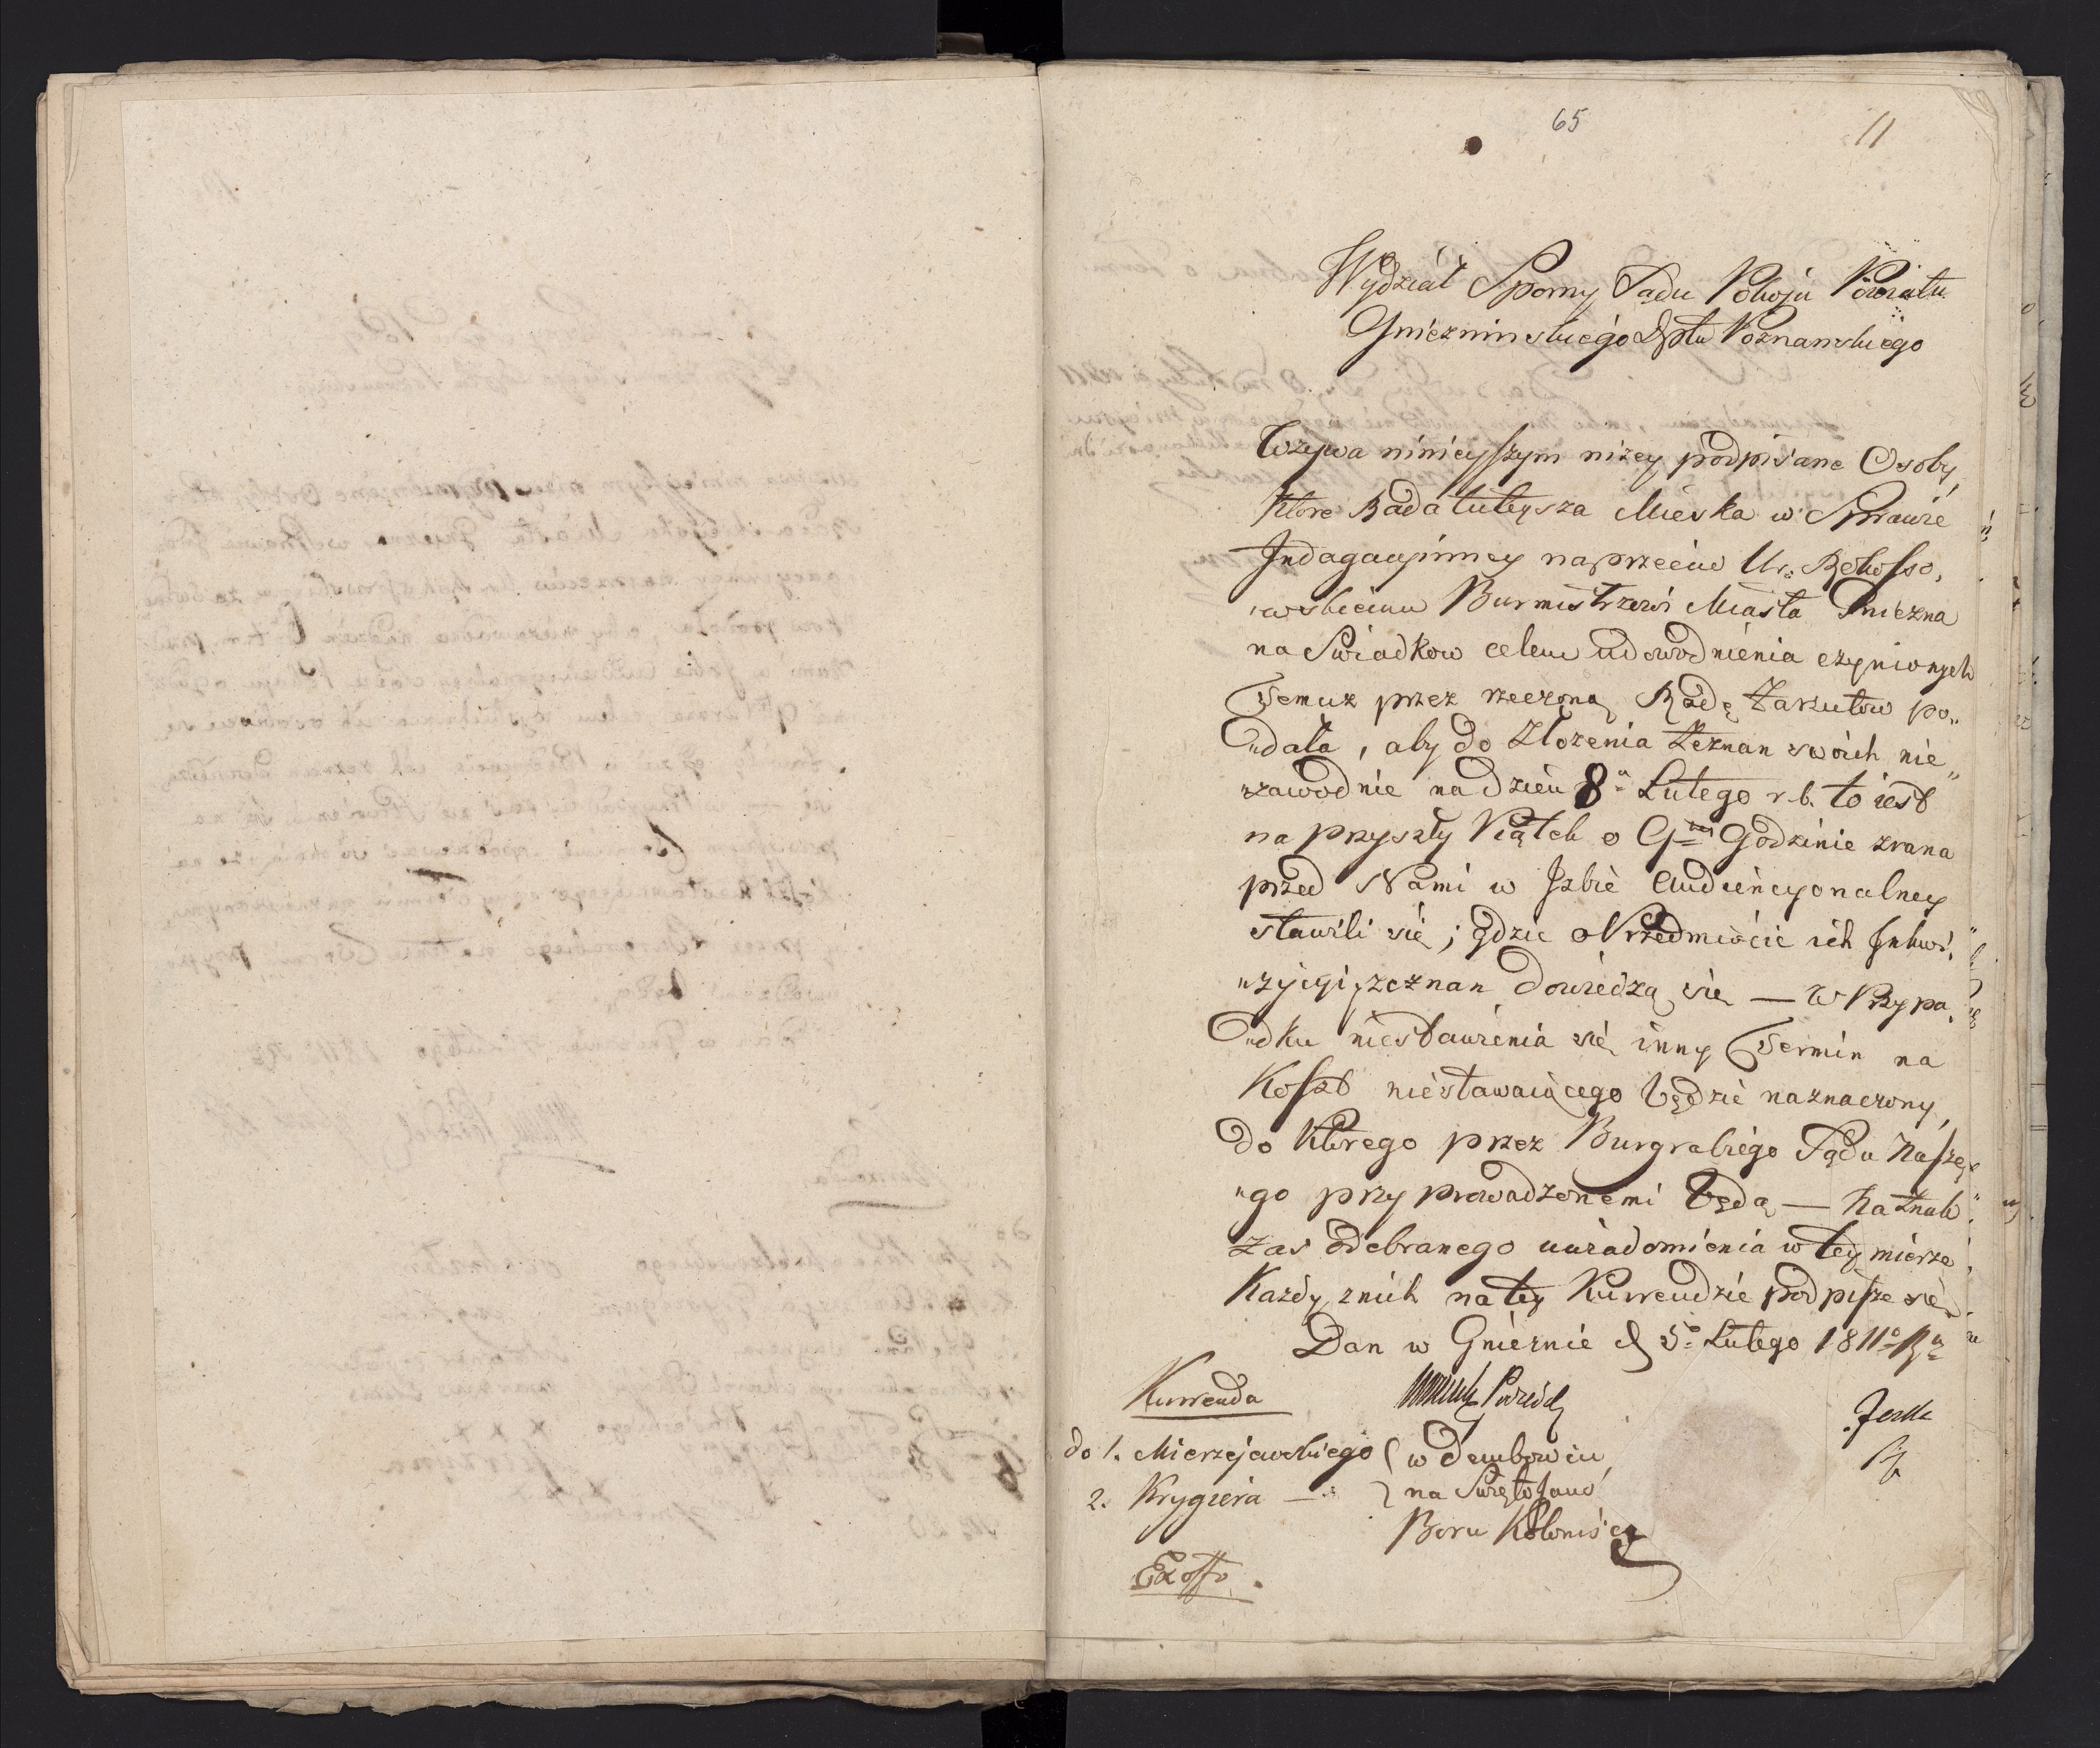 65
11
Wydział Sporny Sądu Pokoju Powiatu
Gniezninskiego Dptu Poznanskiego
Wzywa ninieyszym nizey podpisane Osoby,
które Rada tuteysza Mieyska w Sprawie
Indagacyinney naprzeciw Ur: Rekosso,
"wskiemu Burmistrzowi Miasta Gniezna
na Swiadkow celem udowodnienia czynionych
Temuz przez rzeczoną Radę Zarzutow po„
„dała, aby do Złozenia Zeznan swoich nie„
„zawodnie na dzień 8º Lutego r. b. to iest
na przyszły Piątek o 9tey Godzinie zrana
przed Nami w Izbie Audiencyonalney
stawili się; gdzie o Przedmiocie ich Inkwi,
„zycyi, zeznan dowiedzą się — W Przypa,
„dku niestawienia się inny Termin na
Koszt niestawaiącego będzie naznaczony,
do którego przez Burgrabiego Sądu Nasze,
"go przyprowadzonemi będą — Na Znak
Zas odebranego uwiadomienia w tey mierze
Kazdy z nich na tey Kurrendzie podpisze się
Dan w Gnieznie d. 5º Lutego 1811º Rº
Kurrenda
do 1. Mierzejewskiego ( w Dembowcu
2. Krygiera — na Swięto Jans
Boru Kolonisci
Ex offo.